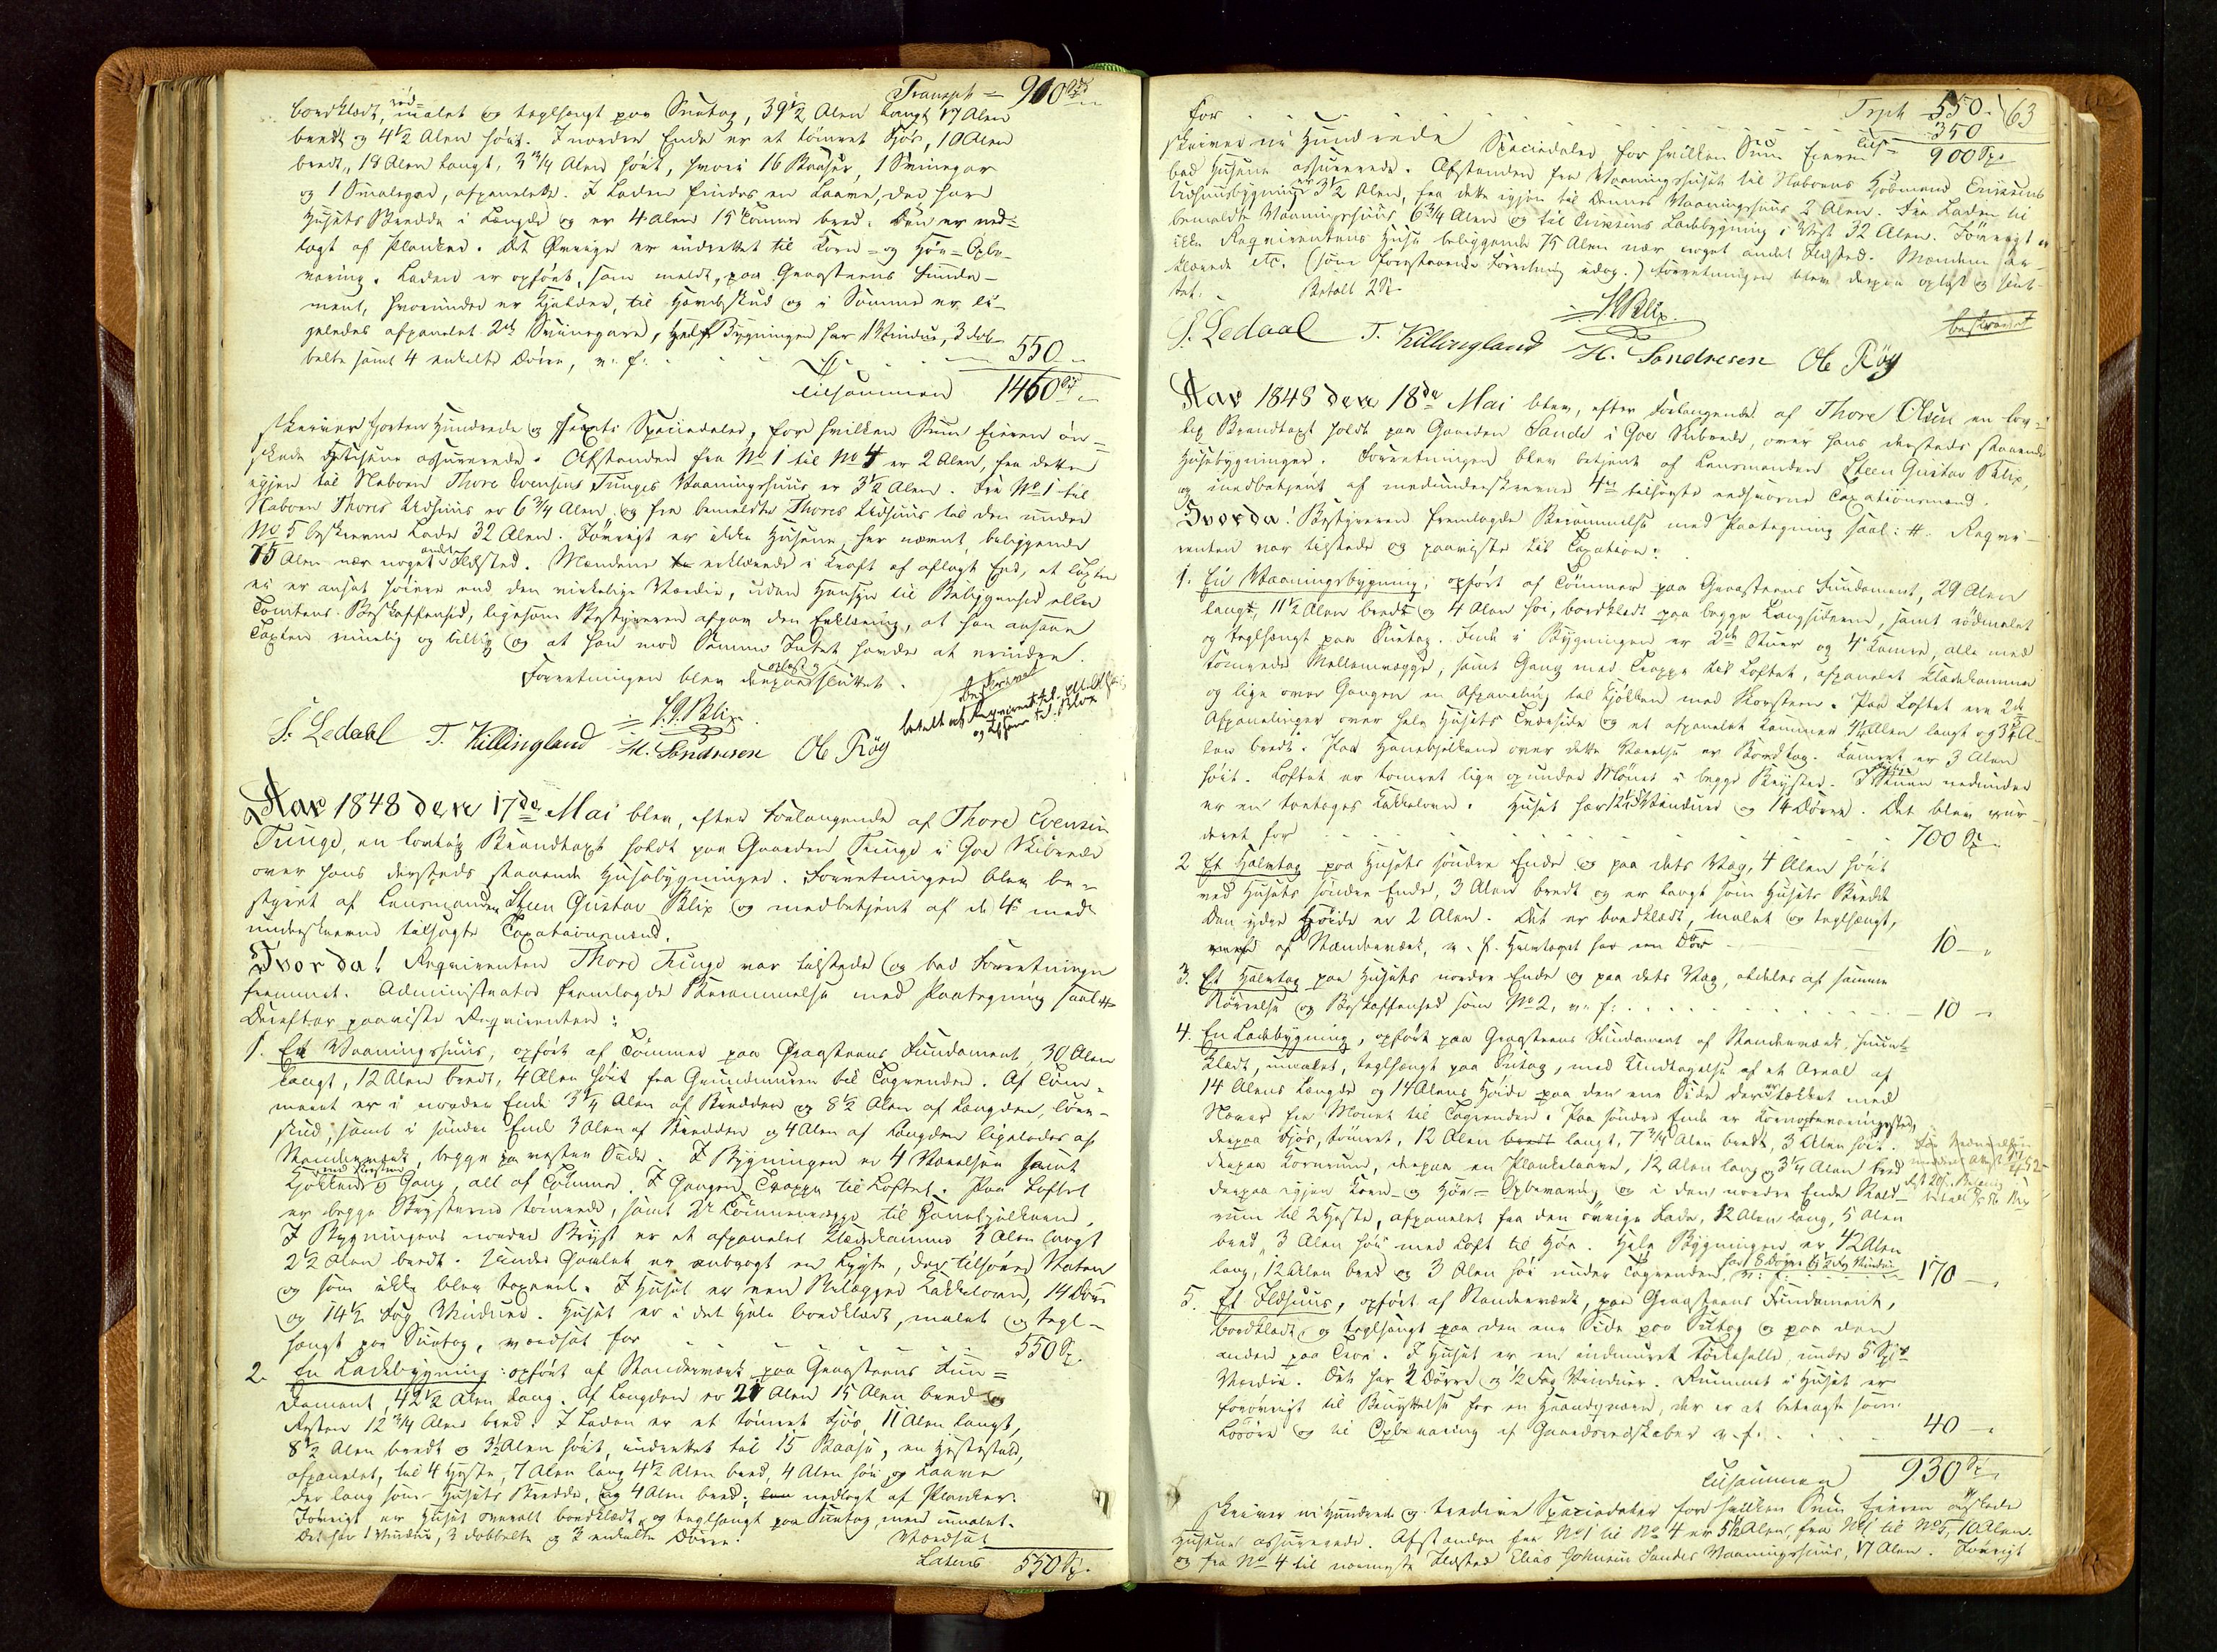 Transpt = 910 Spd
bordklædt, rød-malet og teglhængt paa Suetag, 39 1/2 Alen langt 17 Alen
bredt og 4 1/2 Alen høit. I nordre Ende er et tømret Fjøs, 10 Alen
bredt, 18 Alen langt, 3 3/4 Alen høit, hvori 16 Baaser, 1 Svinegar
og 1 Smalegar, afpanelede. I Laden findes en Laave, der har
Husets Bredde i Længde og er 4 Alen 15 Tommer bred. Den er ned-
lagt af Planker. Det Øvrige er indrettet til Korn- og Høe-Opbe-
varing. Laden er opført, som meldt, paa Graasteens Funda-
ment, hvorunder er Kjelder, til Hornbskud og i Samme er li-
geledes afpanelet 2de Svinegare, Hele Bygningen har 1 Vindue, 3 dob-
belte samt 4 enkelte Døre, v. f. 550 -
Tilsammen 1460 Spd
skriver fjorten Hundrede og sexti Speciedaler, for hvilken Sum Eieren øn-
skede Husene assurerede. Afstanden fra No 1 til No 4 er 2 Alen, fra dette
igjen til Naboen Thore Evensens Tunges Vaaningshuus er 3 1/2 Alen. Fra No 1 til
Naboen Thores Udhuus er 6 3/4 Alen, og fra bemeldte Thores Udhuus til den under
No 5 beskrevne Lade 32 Alen. Forøvrigt er ikke Husene, her nævnt, beliggende
75 Alen nær noget andet Ildsted. Mændene erklærede i Kraft af aflagt Eed, at Taxten
ei er ansat høiere end den virkelige Værdie, uden Hensyn til Beliggenhed eller
Tomtens Beskaffenhed, ligesom Bestyreren afgav den Erklæring, at han ansaae
Taxten rimelig og billig og at han mod Samme Intet havde at erindre.
Forretningen blev derpaa oplæst og sluttet.
Beskrevet
S. G. Blix
S. Ledaal T. Killingland H. Sondresen Ole Røg
Aar 1848 den 17de Mai blev, efter Forlangende af Thore Evensen
Tunge, en lovlig Brandtaxt holdt paa Gaarden Tunge i Goe Skibrede
over hans dersteds staaende Huusbygninger. Forretningen blev be-
styret af Lensmanden Steen Gustav Blix og medbetjent af de 4re med-
underskrevne tilsagte Taxationsmænd.
Hvorda! Reqvirenten Thore Tunge var tilstede og bad Forretningen
fremmet. Administrator fremlagde Berammelse med Paategning saal. #
Derefter paaviste Reqvirenten:
1. Et Vaaningshuus, opført af Tømmer paa Graasteens Fundament, 30 Alen
langt, 12 Alen bredt, 4 Alen høit fra Grundmuren til Tagrenden. Af Tøm-
meret er i nordre Ende 3 1/4 Alen af Bredden og 8 1/2 Alen af Længden, løv-
skud, samt i søndre Ende 3 Alen af Bredden og 4 Alen af Længden ligeledes af
Standerværk, begge paa vestre Side. I Bygningen er 4 Værelser samt
Kjøkken med Skorsten og Gang, alt af Tømmer. I Gangen Trappe til Loftet. Paa Loftet
er begge Brystene tømrede, samt 2de Tømmervægge til Hanebjelkerne.
I Bygningens nordre Bryst er et afpanelet Klædekammer 3 Alen langt
2 1/2 Alen bredt. Under Gavlen er anbragt en Lygte, der tilhører Staten
og som ikke blev taxeret. I Huset er een Bilægger Kakkelovn, 14 Døre
og 14 1/2 Fag Vinduer. Huset er i det Hele bordklædt, malet og tegl-
hængt paa Suetag, værdsat for 550 Sp.
2. En Ladebygning: opført af Standerværk paa Graasteens Fun-
dament, 42 1/2 Alen lang. Af Længden er 21 Alen 15 Alen bred og
Resten 12 3/4 Alen bred. I Laden er et tømret Fjøs, 11 Alen langt,
8 1/2 Alen bredt og 3 1/2 Alen høit, indrettet til 15 Baase, en Hestestald,
afpanelet, til 4 Heste, 7 Alen lang 4 1/2 Alen bred, 4 Alen høi og Laave
der lang som Husets Bredde, og 4 Alen bred; nedlagt af Planker.
Forøvrigt er Huset overalt bordklædt og teglhængt paa Suetag, men umalet.
Det har 1 Vindue, 3 dobbelte og 3 enkelte Døre. Værdsat
Lateris 550 Sp.
Trpt 550 - 63
for 350
tils= 900 Spd
skriver ni Hundrede Speciedaler, for hvilken Sum Eieren
bad Husene assurerede. Afstanden fra Vaaningshuset til Naboens Kjøbmand Evensens
Udhuusbygning er 3 1/2 Alen, fra dette igjen til Dennes Vaaningshuus 2 Alen. Fra Laden til
bemeldte Vaaningshuus 6 3/4 Alen og til Evensens Ladebygning i Vest 32 Alen. Forøvrigt er
ikke Reqvirentens Huse beliggende 75 Alen nær noget andet Ildsted. Mændene er-
klærede etc. (som foregaaende Forretning udviser.) Forretningen blev derpaa oplæst og slut-
tet. Betalt 2 Sp.
beskrevet
S G Blix.
S. Ledaal T. Killingland H. Sondresen Ole Røg
Aar 1848 den 18de Mai blev, efter Forlangende af Thore Olsen en lov-
lig Brandtaxt holdt paa Gaarden Sande i Goe Skibrede, over hans dersteds staaende
Huusbygninger. Forretningen blev betjent af Lensmanden Steen Gustav Blix,
og medbetjent af medunderskrevne 4re tilsagte edsvorne Taxationsmænd.
Hvorda! Bestyreren fremlagde Berammelse med Paategning saal: #. Reqvi-
renten var tilstede og paaviste til Taxation:
1. En Vaaningsbygning, opført af Tømmer paa Graasteens Fundament, 29 Alen
langt, 11 1/2 Alen bredt og 4 Alen høi, bordklædt paa begge Langsiderne, samt rødmalet
og teglhængt paa Suetag. Inde i Bygningen er 2de Stuer og 4 Kamre, alle med
tømrede Mellemvægge, samt Gang med Trappe til Loftet, afpanelet Klædekammer
og lige over Gangen en Afpaneling til Kjøkken med Skorsteen. Paa Loftet ere 2de
Afpanelinger over hele Husets Tværside og et afpanelet Kammer 4 1/4 Alen langt og 3 3/4 A-
len bredt. Paa Hanebjelkene over dette Værelse er Bordtag. Kamret er 3 Alen
høit. Loftet er tømret lige op under Mønet i begge Bryster. I Stuen nedunder
er en toetages Kakkelovn. Huset har 12 1/2 Vinduer og 14 Døre. Det blev vur-
deret for 700 Sp.
2 Et Halvtag paa Husets søndre Ende og paa dets Væg, 4 Alen høit
ved Husets søndre Ende, 3 Alen bredt og er langt som Husets Bredde
Den ydre Høide er 2 Alen. Det er bordklædt, malet og teglhængt,
af Standerværk, v. f. Halvtaget har een Dør 10 -
3. Et Halvtag paa Husets nordre Ende og paa dets Væg, aldeles af samme
Størrelse og Beskaffenhed som No 2, v. f. 10 -
4. En Ladebygning, opført paa Graasteens Fundament af Standerværk,
klædt, umalet, teglhængt paa Suetag, med Undtagelse af et Areal af
14 Alens Længde og 14 Alens Høide paa den ene Side der er tækket med
Næver fra Mønet til Tagrenden. Paa søndre Ende er Kornopbevaringssted,
derpaa Fjøs, tømret, 12 Alen langt, 7 3/4 Alen bredt, 3 Alen høit.
derpaa Kornrum, derpaa en Plankelaave, 12 Alen lang og 3 1/4 Alen bred
derpaa igjen Korn- og Høe-Opbevaring og i den nordre Ende Stald-
rum til 2 Heste, afpanelet fra den øvrige Lade, 12 Alen lang, 5 Alen
bred, 3 Alen høi med Loft til Høe. Hele Bygningen er 42 Alen
lang, 12 Alen bred og 3 Alen høi under Tagrenden, har 8 Døre og 1/2 Fag Vindue v: f: 170 -
5. Et Ildhuus, opført af Standerværk, paa Graasteens Fundament,
bordklædt og teglhængt paa den ene Side paa Suetag og paa den
anden paa Troe. I Huset er en indmuret Tørkehelle, under 5 Spd
Værdie. Det har 2 Døre og 1/2 Fag Vinduer. Rummet i Huset er
forøvrigt til Benyttelse for en Haandqværn, der er at betragte som
Løsøre og til Opbevaring af Gaardsredskaber v. f. 40 -
Tilsammen 930 Sp.
skriver ni Hundrede og tredive Speciedaler for hvilken Sum Eieren ønskede
Husene assurerede. Afstanden fra No 1 til No 4 er 5 1/2 Alen, fra No 1 til No 5, 10 Alen.
og fra No 4 til nærmeste Ildsted Elias Johnsen Sandes Vaaningshuus, 17 Alen. Forøvrigt